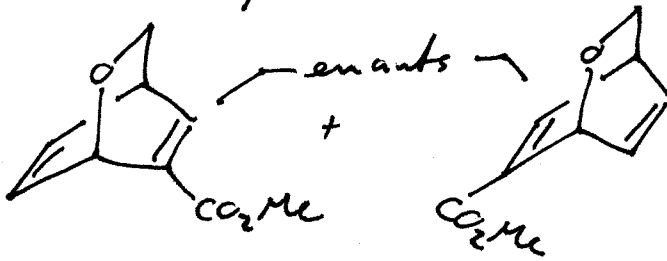 O O
enants
+
CO2Me CO2Me